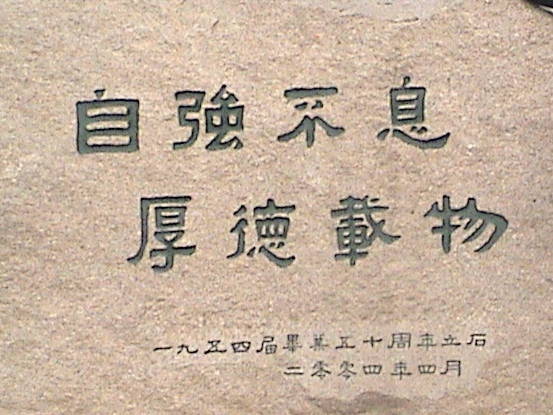 自強不息
厚德載物
一九五四届畢業五十周年立石
二零零四年四月